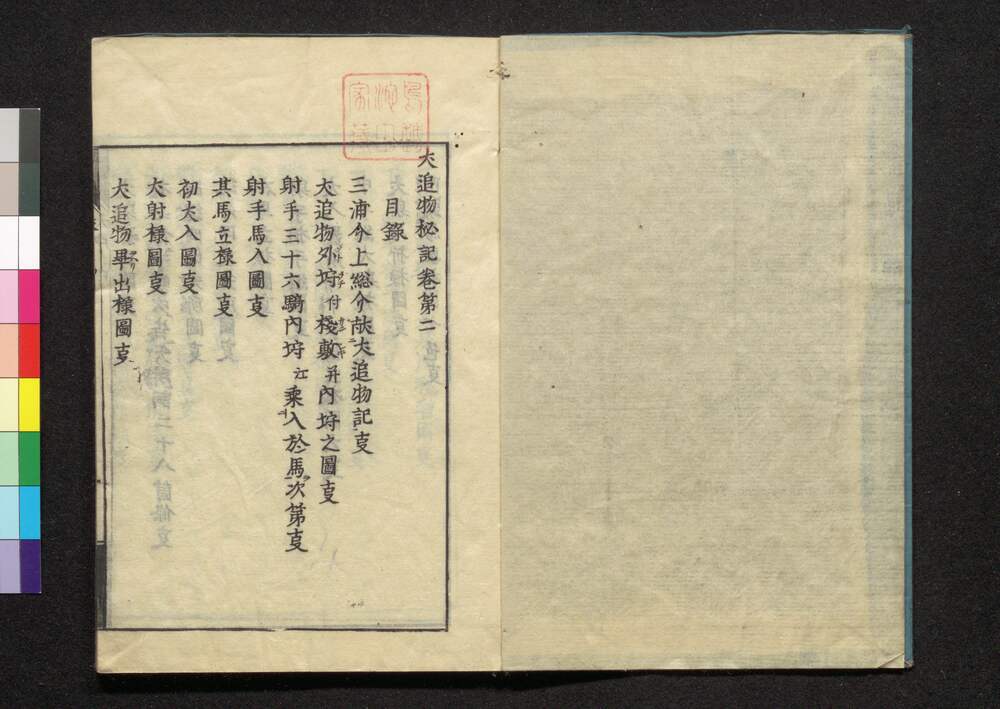 犬追物秘記巻第二
目録
三浦介上総介献犬追物記叓
犬追物外埒付棧敷并内埒之圖叓
射手三十六騎内埒江乗入於馬次第叓
射手馬入圖叓
其馬立様圖叓
初犬入圖叓
犬射様圖叓
犬追物畢出様圖叓